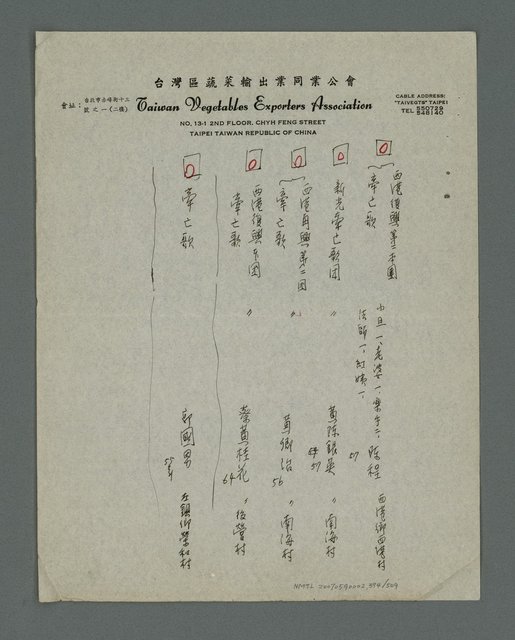 台灣區蔬菜輸出業同業公會
會址：台北市赤峰街十三號之一(二樓)
Taiwan Vegetables Exporters Association
CABLE ADDRESS:
"TAIVEGTS" TAIPEI
TEL 550729
548140
NO. 13-1 2ND FLOOR, CHYH FENG STREET
TAIPEI TAIWAN REPUBLIC OF CHINA
西港復興第二本團
牽亡歌
小旦一、老婆一、樂手二、
法師一、紅姨一
陳程 57 西港鄉西港村
新光牽亡歌團 〃 黃陳銀英 57 〃 南海村
西港再興第二團
牽亡歌 〃 黃鄉治 56 〃 南海村
西港復興本團
牽亡歌 〃 蔡黃桂花 64 〃 後營村
牽亡歌 郭國男 左鎮鄉榮和村
NMTL 20070590002_394/509